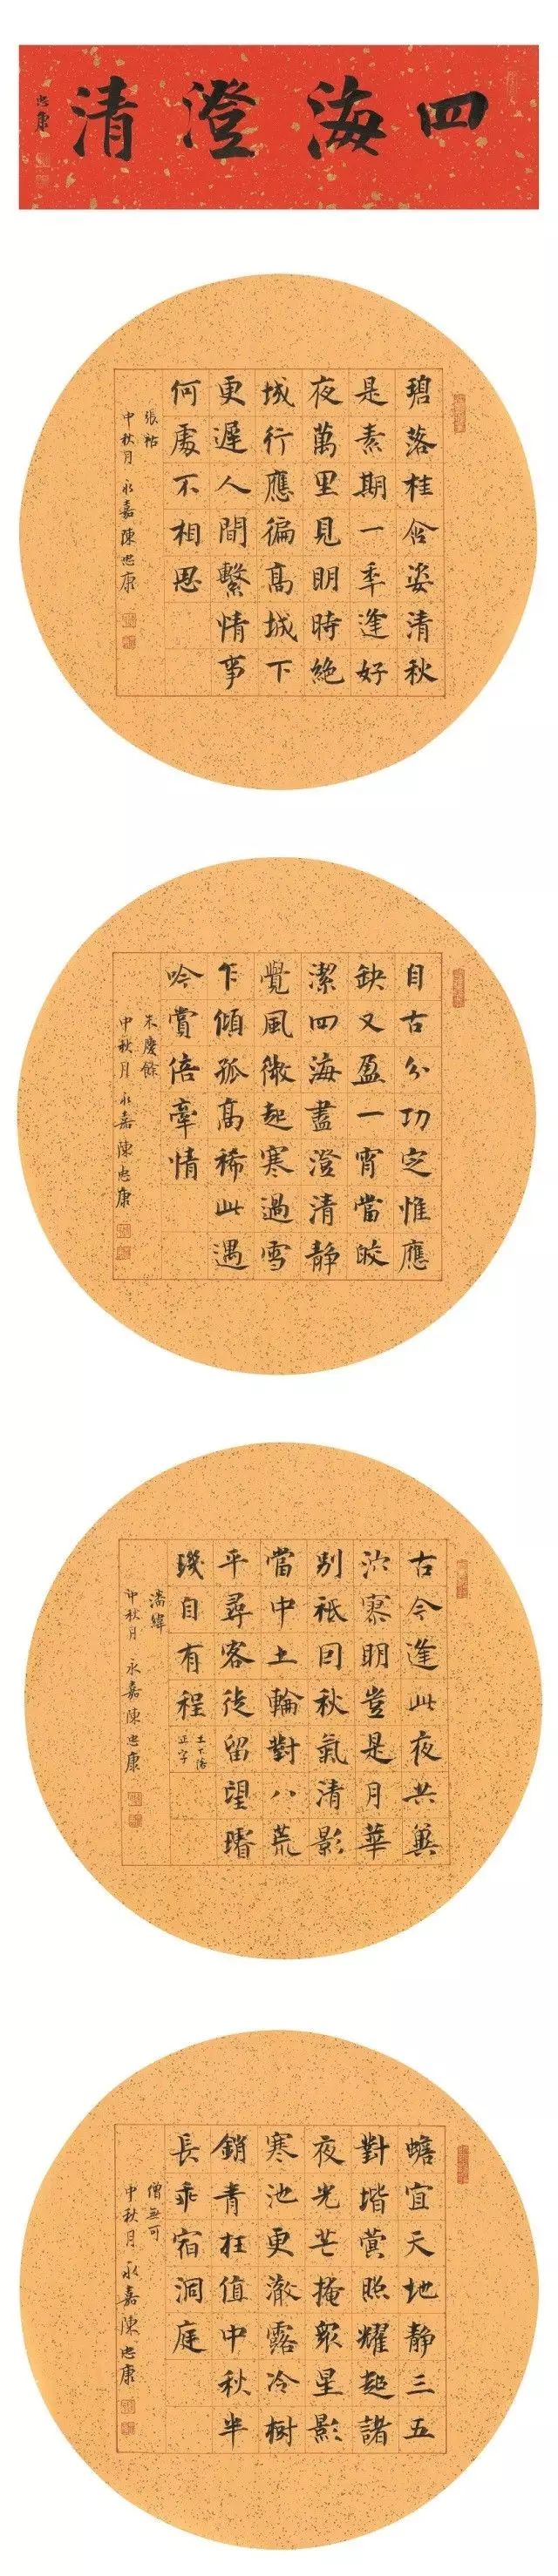 四海澄清
忠康
碧落桂含姿清秋
是素期一年逢好
夜萬里見明時絶
域行應徧高城下
更遲人間繫情事
何處不相思
張祜
中秋月 永嘉陳忠康
自古分功定惟應
缺又盈一宵當皎
潔四海盡澄清静
覺風微起寒過雪
乍傾孤高稀此遇
吟賞倍牽情
朱慶餘
中秋月 永嘉陳忠康
古今逢此夜共冀
泬寥明豈是月華
別祇回秋氣清影
當中土輪對八荒
平尋客徒留望璿
璣自有程
土下落
正字
潘緯
中秋月 永嘉陳忠康
蟾宜天地静三五
對堦蓂照耀超諸
夜光芒掩衆星影
寒池更澈露冷樹
銷青枉值中秋半
長乖宿洞庭
僧無可
中秋月 永嘉陳忠康